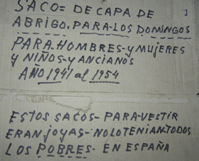 SACO= DE CAPA DE
ABRIGO, PARA-LOS DOMINGOS
PARA-HOMBRES-Y MUJERES
Y NIÑOS-Y ANCIANOS
AÑO 1941 al 1954
ESTOS SACOS-PARA-VESTIR
ERAN JOYAS-NO LO TENIAN-TODOS
LOS POBRES-EN ESPAÑA